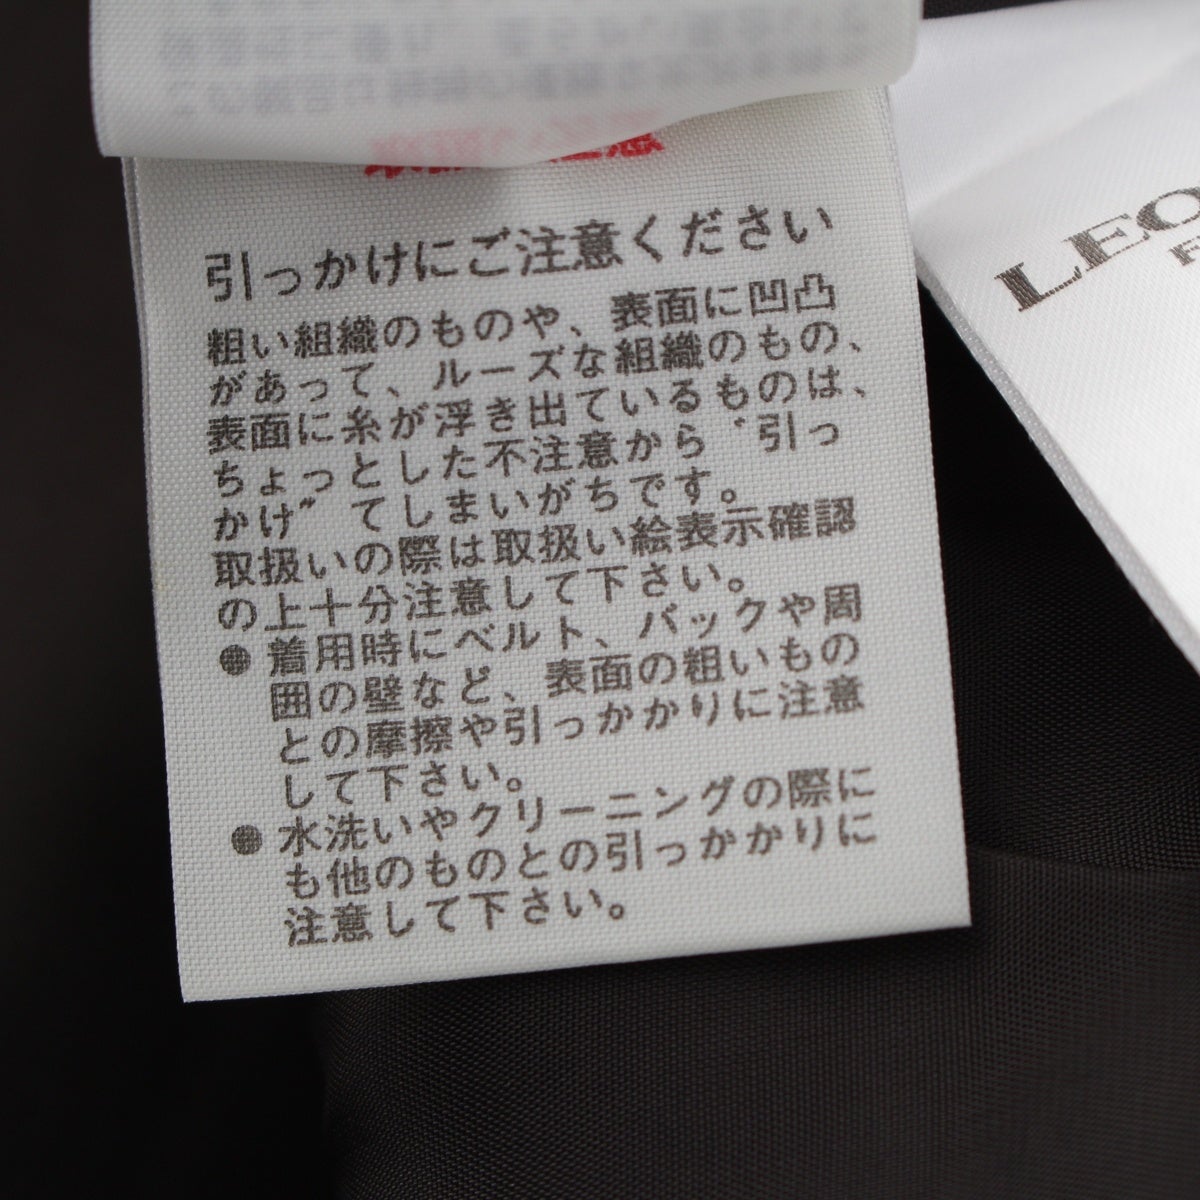 引っかけにご注意ください
粗い組織のものや、表面に凹凸
があって、ルーズな組織のもの、
表面に糸が浮き出ているものは、
ちょっとした不注意から〝引っ
かけ〟てしまいがちです。
取扱いの際は取扱い絵表示確認
の上十分注意して下さい。
●着用時にベルト、バックや周
囲の壁など、表面の粗いもの
との摩擦や引っかかりに注意
して下さい。
●水洗いやクリーニングの際に
も他のものとの引っかかりに
注意して下さい。